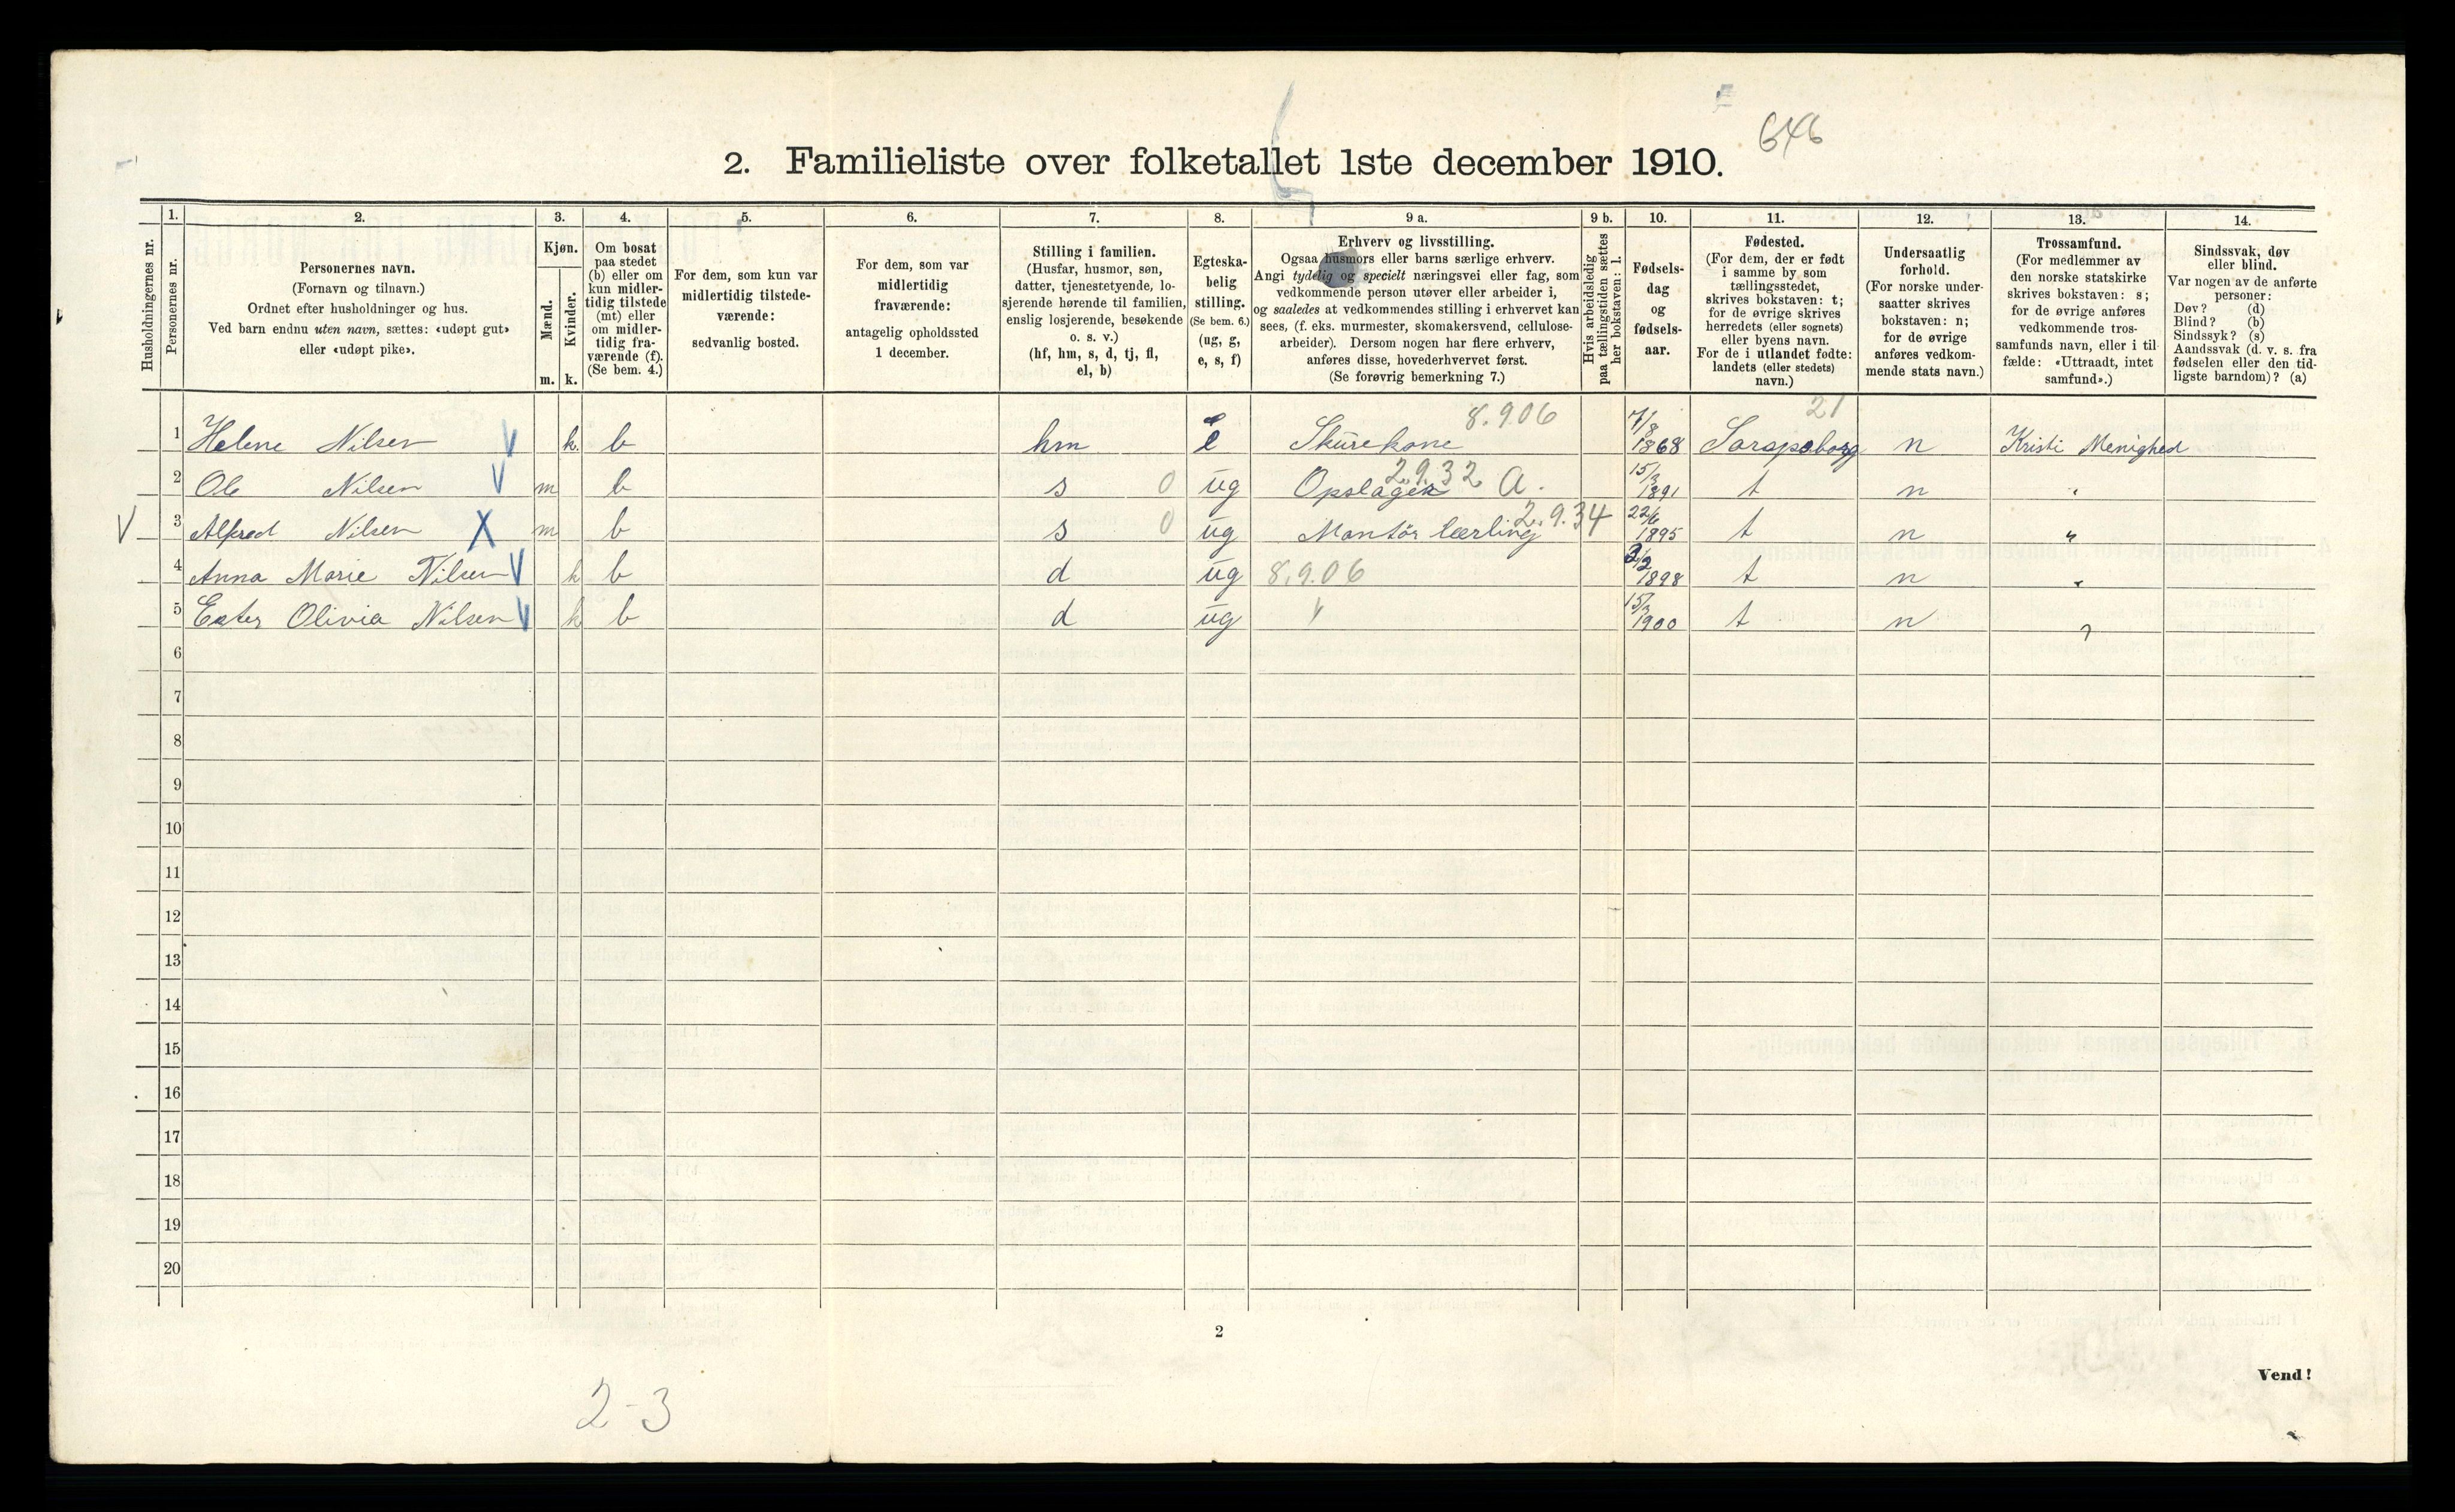 646
2. Familieliste over folketallet 1ste december 1910.
Husholdningernes nr.
1.
Personernes nr.
2.
Personernes navn.
(Fornavn og tilnavn.)
Ordnet efter husholdninger og hus.
Ved barn endnu uten navn, sættes: «udøpt gut»
eller «udøpt pike».
3.
Kjøn.
Mænd.
Kvinder.
m. k.
4.
Om bosat
paa stedet
(b) eller om
kun midler-
tidig tilstede
(mt) eller
om midler-
tidig fra-
værende (f).
(Se bem. 4.)
5.
For dem, som kun var
midlertidig tilstede-
værende:
sedvanlig bosted.
6.
For dem, som var
midlertidig
fraværende:
antagelig opholdssted
1 december.
7.
Stilling i familien.
(Husfar, husmor, søn,
datter, tjenestetyende, lo-
sjerende hørende til familien,
enslig losjerende, besøkende
o. s. v.)
(hf, hm, s, d, tj, fl,
el, b)
8.
Egteska-
belig
stilling.
(Se bem. 6.)
(ug, g,
e, s, f)
9 a.
Erhverv og livsstilling.
Ogsaa husmors eller barns særlige erhverv.
Angi tydelig og specielt næringsvei eller fag, som
vedkommende person utøver eller arbeider i,
og saaledes at vedkommendes stilling i erhvervet kan
sees, (f. eks. murmester, skomakersvend, cellulose-
arbeider). Dersom nogen har flere erhverv,
anføres disse, hovederhvervet først.
(Se forøvrig bemerkning 7.)
9 b.
Hvis arbeidsledig
paa tællingstiden sættes
her bokstaven: l.
10.
Fødsels-
dag
og
fødsels-
aar.
11.
Fødested.
(For dem, der er født
i samme by som
tællingsstedet,
skrives bokstaven: t;
for de øvrige skrives
herredets (eller sognets)
eller byens navn.
For de i utlandet fødte:
landets (eller stedets)
navn.)
12.
Undersaatlig
forhold.
(For norske under-
saatter skrives
bokstaven: n;
for de øvrige
anføres vedkom-
mende stats navn.)
13.
Trossamfund.
(For medlemmer av
den norske statskirke
skrives bokstaven: s;
for de øvrige anføres
vedkommende tros-
samfunds navn, eller i til-
fælde: «Uttraadt, intet
samfund».)
14.
Sindssvak, døv
eller blind.
Var nogen av de anførte
personer:
Døv? (d)
Blind? (b)
Sindssyk? (s)
Aandssvak (d. v. s. fra
fødselen eller den tid-
ligste barndom)? (a)
8.906 21
1 Helene Nilsen V k. b hm e Skurekone 7/8 1868 Sarpsborg n Kristi Menighed
2 Ole Nilsen V m b s 0 ug Opslager 2.9.32 a. 15/3 1891 t n "
V 3 Alfred Nilsen X m b s 0 ug Montör lærling 2.9.34 22/6 1895 t n "
4 Anna Marie Nilsen V k b d ug 8.9.06 1898 t n "
5 Ester Olivia Nilsen V k b d ug 15/3 1900 t n "
6
7
8
9
10
11
12
13
14
15
16
17
18
19
20
2
Vend!
2-3